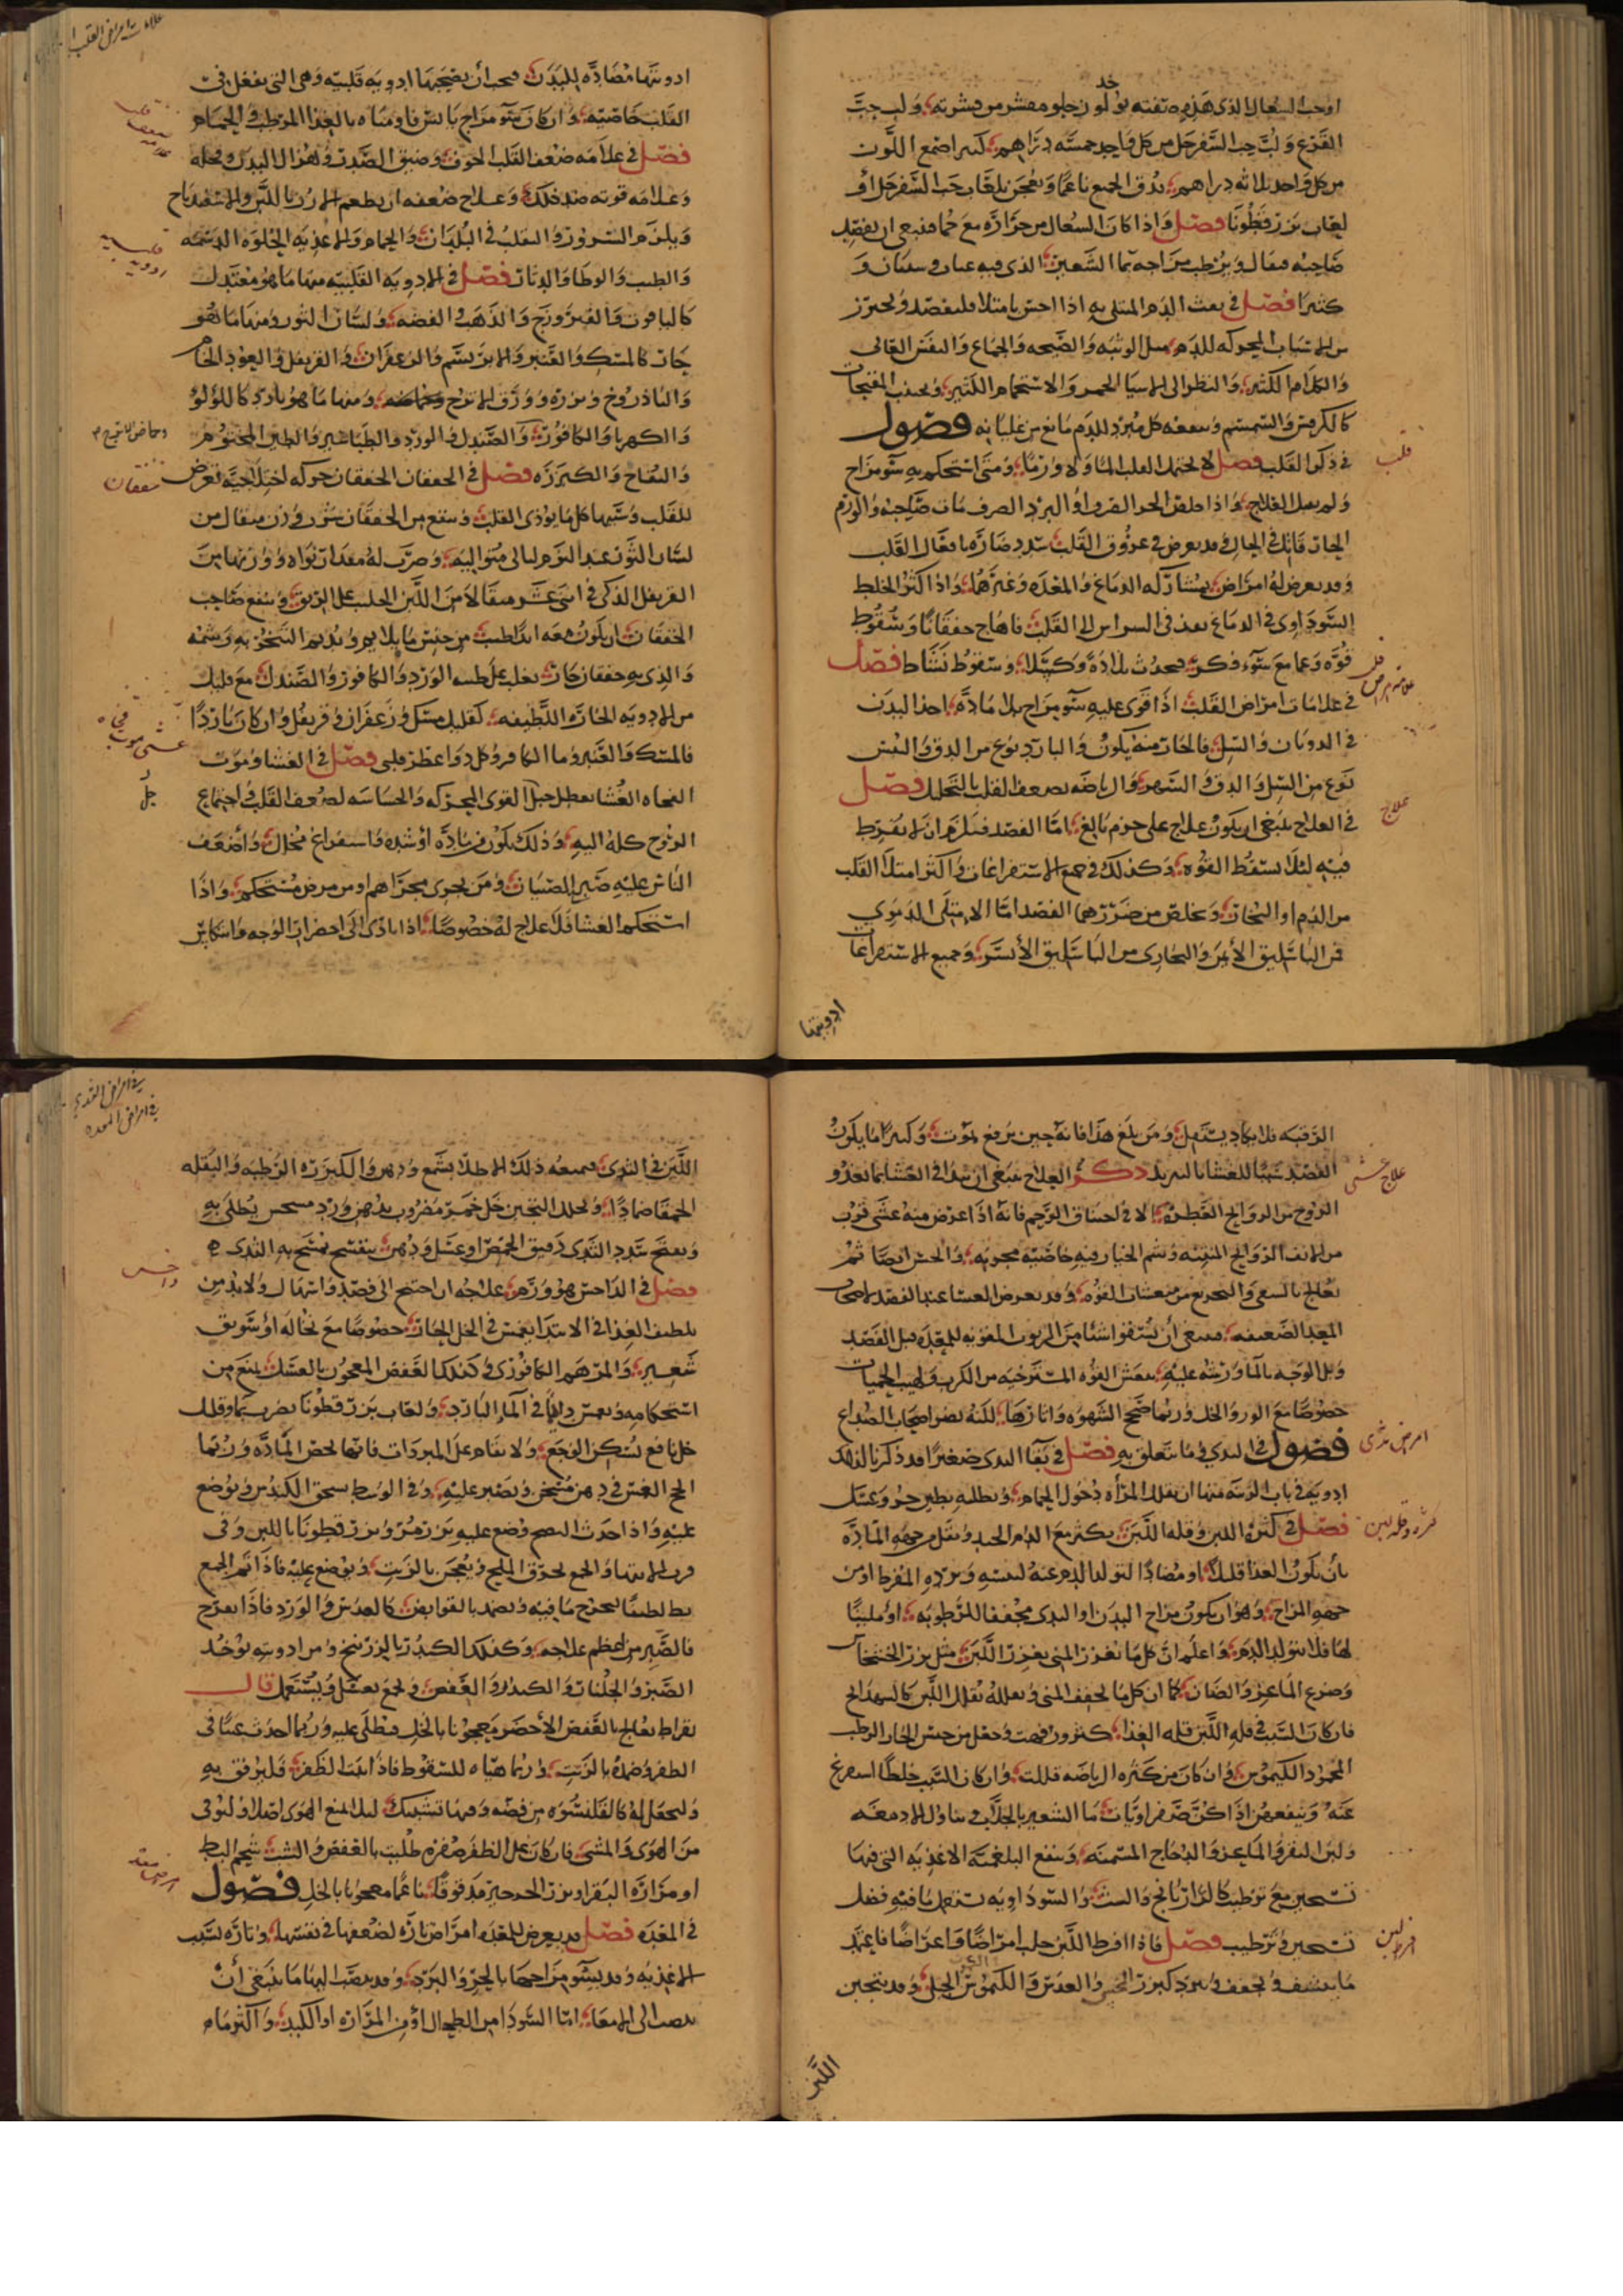 او حب السعال الذى هذه صفته يؤخذ لوز حلو مقشر من قشرته ولب حب
القرع ولب حب السفرجل من كل واحد خمسه دراهم كثيرا صمغ اللوز
من كل واحد ثلاثه دراهم يدق الجميع ناعما ويعجن بلعاب حب السفرجل أو
لعاب بزر قطونا فصل واذا كان السعال من حرارة مع حما فينبغى ان يفصد
صاحبه ويرطب مزاجه بما الشعير الذى فيه عناب وسبستان
فصل فى نفث الدم المبتلى به اذا احس بامتلا فليفصد ويحترز
من الاسباب المحركه للدم مثل الوثبه والصيحه والجماع والنفس العالى
والكلام الكثير والنظر الى الاشيا الحمر والاستحمام الكثير ويجنب المفتحات
كالكرفس والسمسم وينفعه كل مبرد للدم مانع من غليانه فصول
فى ذكر القلب فصل لا يحتمل القلب الما ولا ورما ومتى استحكم به سو مزاج
ولم يقبل العلاج واذا خلص الحر الصرف او البرد الصرف مات صاحبه والورم
الحار قاتل فى الحال وقد يعرض فى عروق القلب سدد ضاره بافعال القلب
وقد يعرض له امراض بمشاركه الدماغ والمعده وغيرهما واذا كثر الخلط
السوداوى فى الدماغ نفذ فى الشراين الى القلب فاهاج خفقانا وسقوط
قوه وغما مع سوء فكر فيحدث بلاده وكسلا وسقوط نشاط فصل
فى علامات امراض القلب اذا قوى عليه سو مزاج بلا ماده اخذ البدن
فى الذوبان والسل فالحار منه يكون والبارد نوع من الدق واليبس
نوع من السل والدق والسهر والرياضه يضعف القلب بالتحلل فصل
فى العلاج ينبغى ان يكون علاج على حزم بالغ اما الفصد فيلزم ان لا يفرط
فيه لئلا تسقط القوه وكذلك فى جميع الاستفراغات واكثر امتلا القلب
من الدم او البخار ويخلص من ضررهما الفصد اما الامتلى الدموي
فمن الباسليق الأيمن والبخارى من الباسليق الأيسر وجميع الاستفراغات
ادويتها
ادويتها مضاده للبدن فيجب أن يصحبها ادويه قلبيه وهى التى تفعل فى
القلب خاصيه وان كان سو مزاج يابس قاومناه بالغذا المرطب والحمام
فصل فى علامه ضعف القلب الخوف وضيق الصدر وهزال البدن ونحله
وعلامه قوته ضد ذلك وعلاج ضعفه ان يطعم الارز باللبن والاسفيدباج
ويلزم السرور والتقلب فى البلدان والحمام والاغذيه الحلوه الدسمه
والطيب والوطا والدثار فصل فى الادويه القلبيه منها ما هو معتدل
كالياقوت والفيروزج والذهب والفضه ولسان الثور ومنها ما هو
حار كالمسك والعنبر والابريسم والزعفران والقرنفل والعود الخام
والباذروج وبزره وورق الاترج وحماضه ومنها ما هو بارد كاللؤلؤ
والكهربا والكافور والصندل والورد والطباشير والطين المختوم
والتفاح والكزبره فصل فى الخفقان الخفقان حركه اختلاجيه تعرض
للقلب وسببها كل ما يؤذى القلب وينفع من الخفقان شرب وزن مثقال من
لسان الثور عند النوم ليالى متواليه وجرب له مقدار نواه ووزنها من
القرنفل الذكى فى اثنى عشر مثقالا من اللبن الحليب على الريق وينفع صاحب
الخفقان ان يكون معه ابدا طيب من جنس ما يلايم ويديم التبخر به وشمه
والذى به خفقان حار يغلب على طيبه الورد والكافور والصندل مع قليل
من الادويه الحاره اللطيفه كقليل مسك وزعفران وقرنفل وان كان باردا
فالمسك والعنبر وما الكافور وكل دوا عطر قلبى فصل فى الغشا وموت
الفجاه الغشا تعطل جل القوى المحركه والحساسه لضعف القلب واجتماع
الروح كله اليه وذلك يكون من ماده او شده واستفراغ مخل وأضعف
الناس عليه ضير الصبيان ومن يجرى مجراهم او من مرض مستحكم واذا
استحكم الغشا فلا علاج له خصوصا اذا تادى الى اخضرار الوجه وانتكاس
الرقبه فلا يكاد يستقل ومن بلغ هذا فانه حين يرفع يموت وكثيرا ما يكون
الفصد سببا للغشا بالتبريد ذكر العلاج ينبغى ان يبدا فى الغشا بما يغذو
الروح من الروايح العطره الا فى اختناق الرحم فانه اذا عرض منه غشى قرب
من الانف الروايح المنتنه وشم الخيار فيه خاصيه مجربه والخس ايضا ثم
يعالج بالسعى والتجريع من منعشات القوه وقد يعرض الغشا عند الفصد لاصحاب
المعد الضعيفه فينبغى أن يسقوا شيئا من الربوب المقويه للمعده قبل الفصد
وبل الوجه بالما ورشه عليه ينعش القوه المسترخيه من الكرب ولهيب الحميات
خصوصا مع الورد والخل وربما صحح الشهوه واثارها لكنه يضر اصحاب الصداع
فصول فى الثدي وما يتعلق به فصل فى بقا الثدى صغيرا قد ذكرنا لذلك
ادويه فى باب الزينه منها ان تقلل المرأه دخول الحمام وتطليه بطين حر وعسل
فصل فى كثره اللبن وقله اللبن يكثر مع الدم الجيد ويقل من جهه الماده
بأن يكون الغذا قليلا او مضادا لتولد الدم عنه ليبسه وبرده المفرط او من
جهه المزاج وهو ان يكون مزاج البدن او الثدى مجففا للرطوبه او ملينا
لها فلا يتولد الدم واعلم ان كل ما يغزر المنى يغزر اللبن مثل بزر الخشخاش
وضروع الماعز والضان كما ان كل ما يجفف المنى ويقلله يقلل اللبن كالشهدانج
فان كان السبب فى قله اللبن قله الغذا كثر ورفهت وجعل من جنس الحار الرطب
المحمود الكيموس وان كان من كثره الرياضه قللت وان كان السبب خلطا استفرغ
عنه وينفعهن اذا كن صفراويات ما الشعير بالجلاب
ولبن البقر والماعز والدجاج المسمنه وينفع البلغميه الاغذيه التى فيها
تسخين مع ترطيب كالرازيانج والشبت والسوداويه تستعمل ما فيه فضل
تسخين وترطيب فصل فاذا افرط اللبن جلب امراضا واعراضا فاعتمد
ما ينشف ويجفف ويبرد كبزر الخس والعدس والكمون الجبلى وقد يتجبن
اللبن
اللبن فى الثدى فيمنعه ذلك الاطلا بشمع ودهن والكزبره الرطبه والبقله
الحمقا ضمادا ويحلل التجبن خل خمر مضروب بدهن ورد مسخن يطلى به
ويفتح سدد الثدى دقيق الحمص او عسل ودهن بنفسج يمسح به الثدى
فصل فى الداحس هو ورم علاجه ان احتيج الى فصد واسهال ولا بد من
تلطيف الغذا فى الابتدا يغمس فى الخل الحار خصوصا مع نخاله أو سويق
شعير والمرهم الكافورى وكذلك العفص المعجون بالعسل يمنع من
استحكامه وبغمس دايما فى الما البارد ولعاب بزر قطونا يضرب بما وقليل
خل نافع لتسكين الوجع ولا يقام على المبردات فانها تحصر الماده وربما
انجح الغمس فى دهن مسخن ويصبر عليه وفى الوسط يسحق الكندر ويوضع
عليه واذا حدث النضج وضع عليه بزر مر وبزر قطونا باللبن وفى
قرب الانتها والجمع يحرق الملح ويعجن بالزيت ويوضع عليه فاذا تم الجمع
بط لطيفا ليخرج ما فيه ويضمد بالقوابض كالعدس والورد فاذا تقرح
فالصبر من اعظم علاجه وكذلك الكندر بالزرنيخ ومن ادويته يؤخذ
الصبر والجلنار والكندر والعفص ويجمع بعسل ويستعمل قال
بقراط يعالج بالعفص الأخضر معجونا بالخل فيطلى عليه وربما احدث عيبا فى
الظفر وضمد بالزيت وربما هياه للسقوط فاذا انبت الظفر فليرفق به
وليجعل له كالقلنسوه من فضه وفيها تشبيك ليلا يمنع الهوى اصلا وليوقى
من الهوى والمشى فان كان على الظفر صفره طليت بالعفص والشب بشحم البط
او مراره البقر او بزر الجرجير مدقوقا ناعما معجونا بالخل فصول
فى المعده فصل قد يعرض للمعده امراض تاره لضعفها فى نفسها وتاره لسبب
الاغذيه وقد يسو مزاجها بالحر والبرد وقد ينصب اليها ما ينبغى أن
ينصب الى الامعا اما السودا من الطحال أو من المراره او الكبد واكثر ما